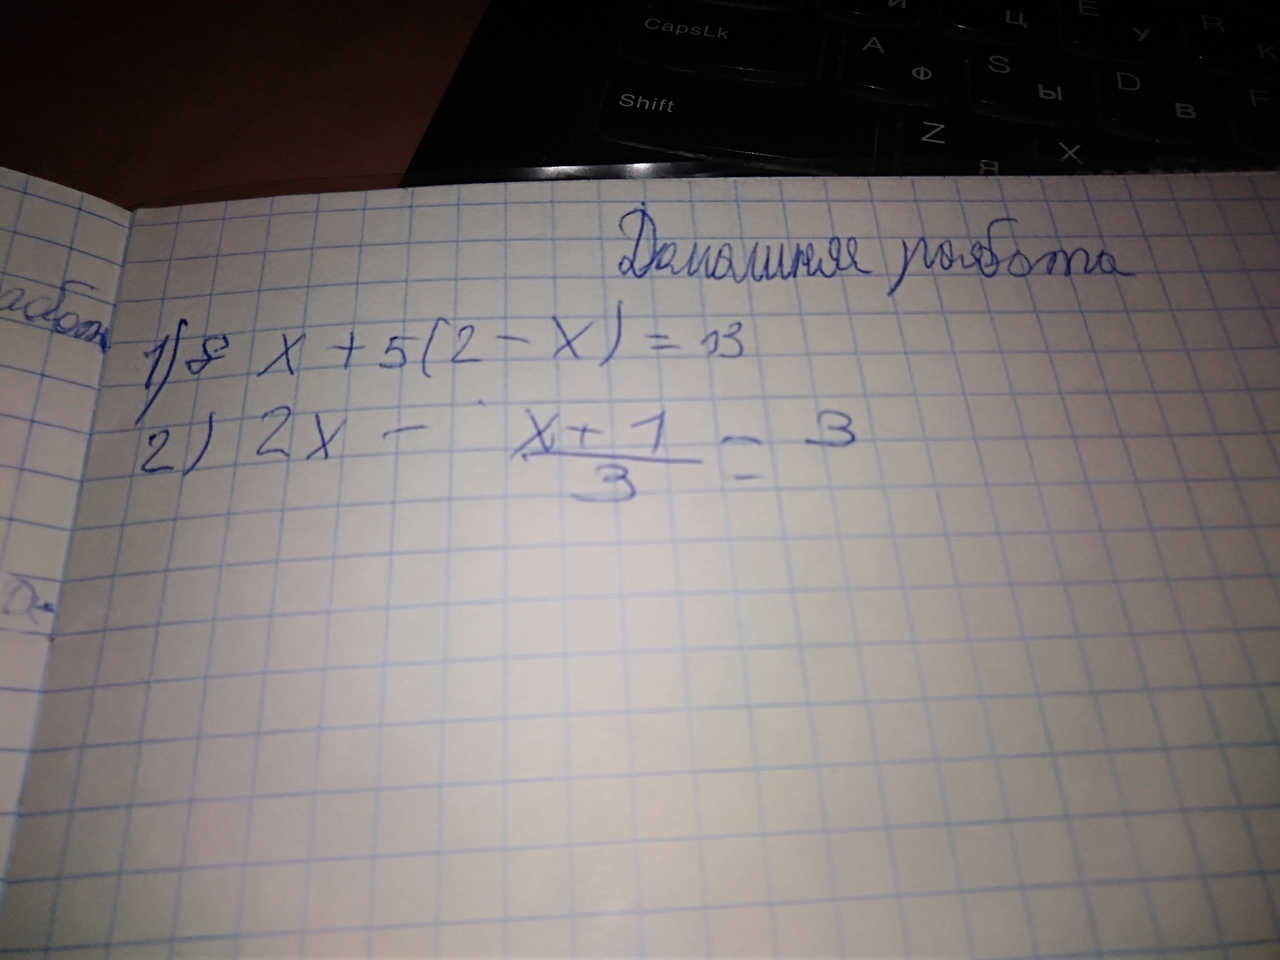 CapsLk А Ф S Ы D В
Shift Z Я X
Домашняя работа
1) 8 x + 5(2 - x) = 13
2) 2x - \frac{x+1}{3} = 3